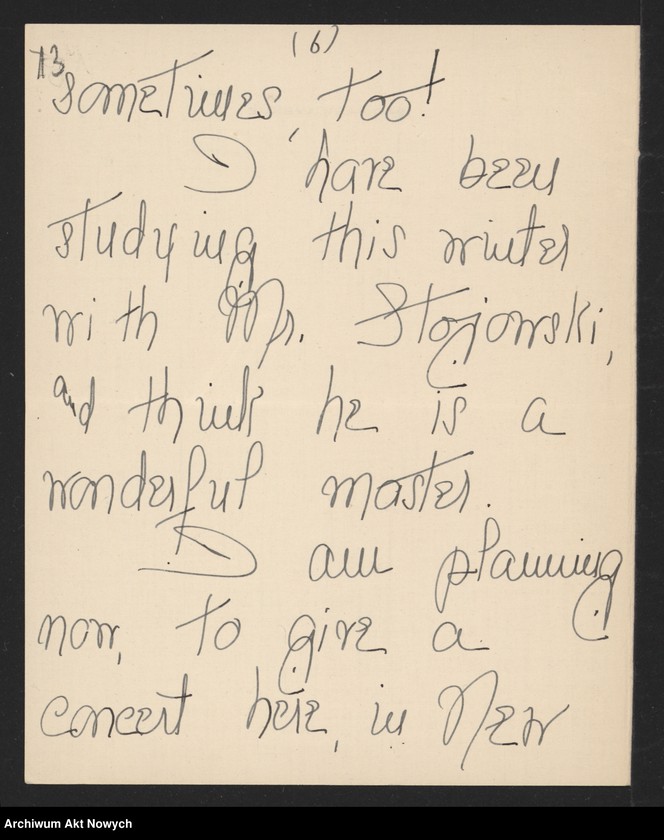 (6)
73
sometimes, too!
I have been
studying this winter
with Mr. Stojowski,
and think he is a
wonderful master.
I am planning
now, to give a
concert here, in New
Archiwum Akt Nowych